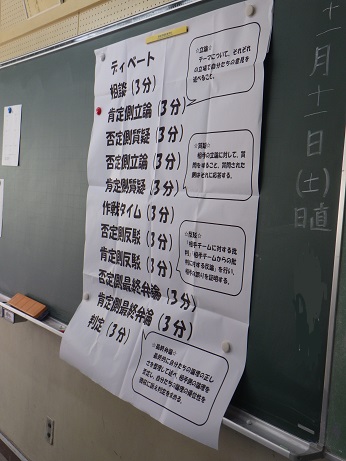 ディベート
相談(3分)
肯定側立論(3分)
否定側質疑(3分)
否定側立論(3分)
肯定側質疑(3分)
作戦タイム(3分)
否定側反駁(3分)
肯定側反駁(3分)
否定側最終弁論(3分)
肯定側最終弁論(3分)
判定(3分)
☆立論☆
テーマについて、それぞれ
の立場で自分たちの意見を
述べること。
☆質疑☆
相手の立論に対して、質
問をすること。質問された
側はそれに応答する。
☆反駁☆
「相手チームに対する批
判」「相手チームからの批
判に対する反論」を行い、
相手の誤りを証明する。
☆最終弁論☆
最終的に自分たちの論理の正し
さを整理して述べ、相手側の論理を
否定し、自分たちの論理の優位性を
十一月十一日(土)
日直